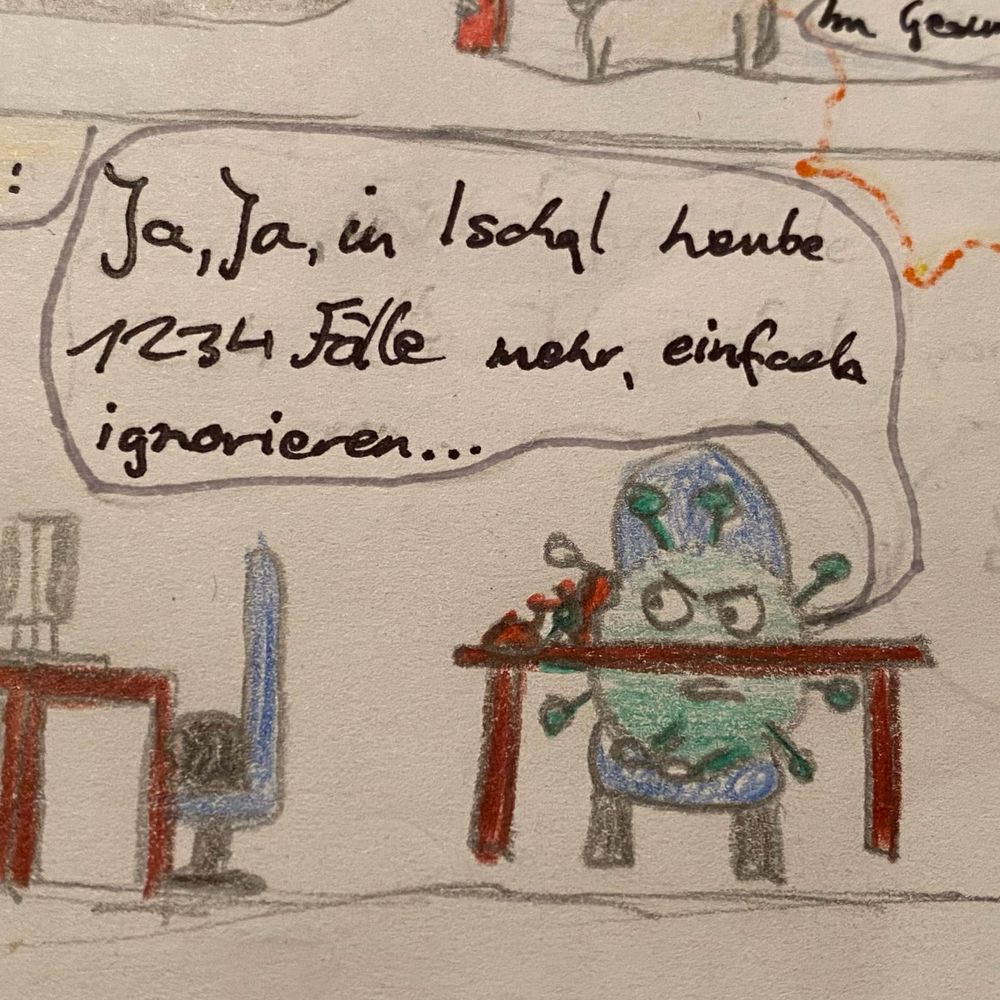 Im
:
Ja, Ja, in Ischgl heute
1234 Fälle mehr, einfach
ignorieren...